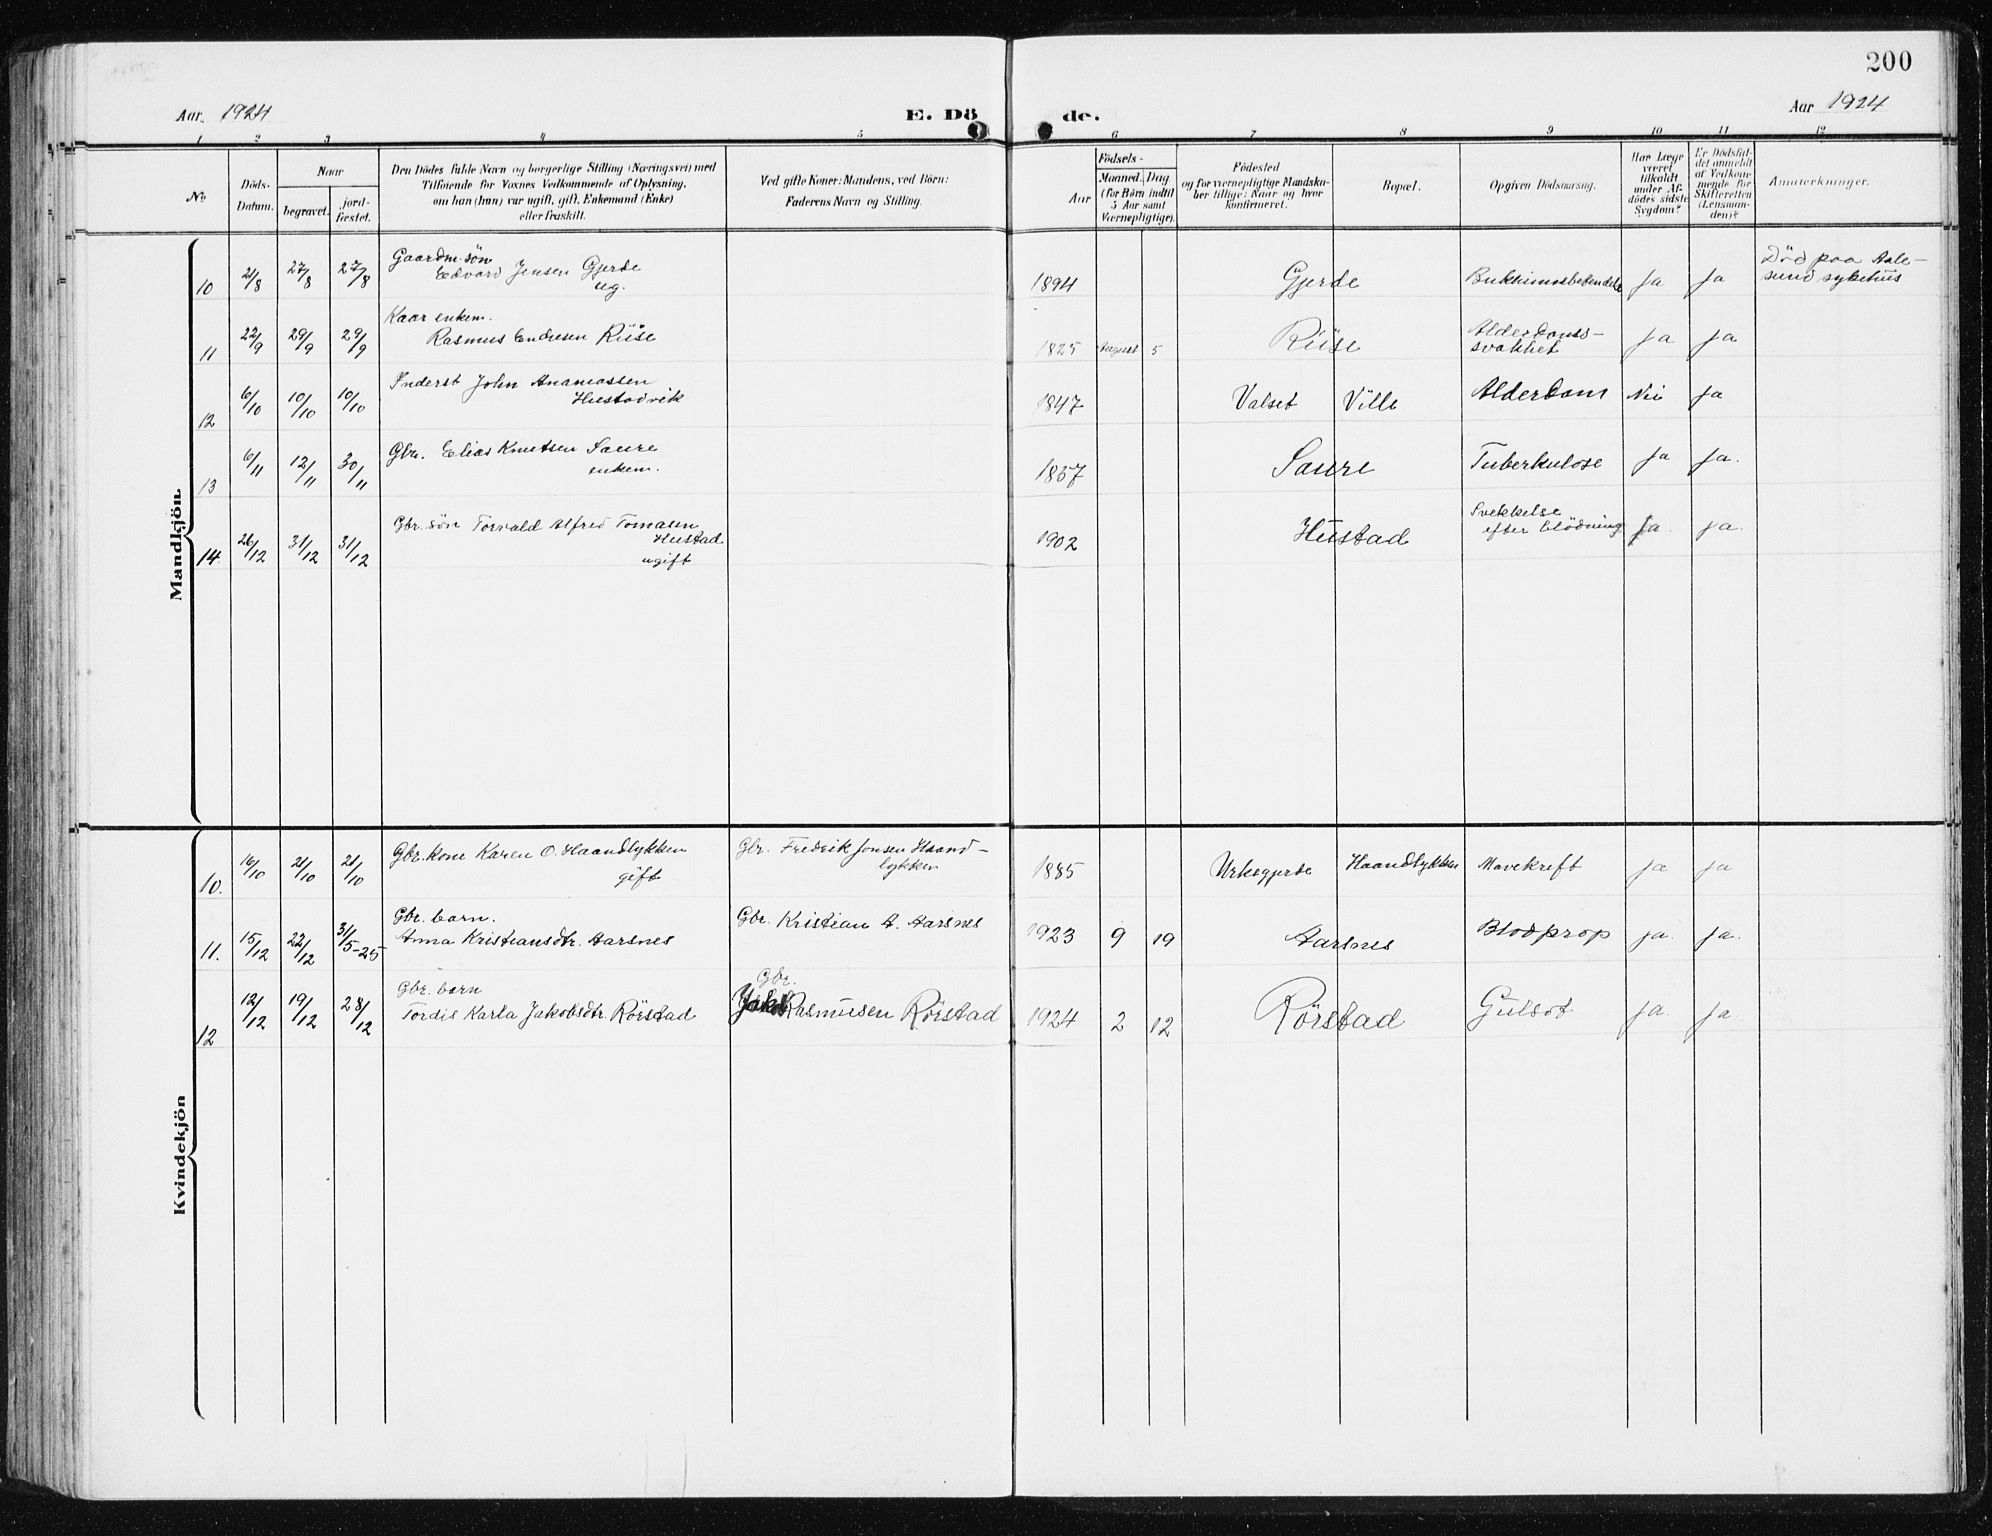 200
Aar 1924
E. Dö de.
Aar 1924
1 2 3 4 5 6 7 8 9 10 11 12
No.
Döds-Datum.
Naar
begravet.
jord-fæstet.
Den Dödes fulde Navn og borgerlige Stilling (Næringsvei) med
Tilföiende for Voxnes Vedkommende af Oplysning,
om han (hun) var ugift, gift, Enkemand (Enke)
eller fraskilt.
Ved gifte Koner: Mandens, ved Börn:
Faderens Navn og Stilling.
Födsels-
Aar
Maaned. Dag
(for Börn indtil
5 Aar samt
Værnepligtige).
Födested
og for værnepligtige Mandska-
ber tillige: Naar og hvor
konfirmeret.
Bopæl.
Opgiven Dödsaarsag.
Har Læge
været
tilkaldt
under Af-
dödes sidste
Sygdom?
Er Dödsfal-
det anmeldt
af Vedkom-
mende for
Skifteretten
(Lensman-
den)?
Anmerkninger.
Mandkjön.
10 21/8 27/8 27/8 Gaardm. sön
Edvard Jensen Gjerde
ug.
1894 Gjerde Bukhinnebetendelse Ja Ja Död paa Aale-
sund sykehus
11 22/9 29/9 29/9 Kaar enkem.
Rasmus Endresen Riise
1825 August 5 Riise Alderdoms-
svakhet Ja Ja
12 6/10 10/10 10/10 Inderst John Ananiassen
Hustadvik
1847 Valset Ville Alderdom Nei Ja
13 6/11 12/11 30/11 Gbr. Elias Knutsen Saure
enkem.
1857 Saure Tuberkulose Ja Ja.
14. 26/12 31/12 31/12 Gbr. sön Torvald Alfred Tomasen
Hustad
ugift
1902 Hustad Svekkelse
efter blödning Ja. Ja.
Kvindekjön
10. 16/10 21/10 21/10 Gbr. kone Karen O. Haandlykken
gift
Gbr. Fredrik Jonsen Haand-
lykken
1885 Urkegjerde Haandlykken Mavekreft Ja Ja
11. 15/12 22/12 31/5-25 Gbr. barn.
Anna Kristiansdtr. Aarsnes
Gbr. Kristian A. Aarsnes
1923 9 19 Aarsnes Blodprop Ja. Ja.
12 12/12 19/12 28/12 Gbr. barn
Tordis Karla Jakobsdtr. Rörstad
Gbr.
Jakob Rasmusen Rörstad
1924 2 12 Rörstad Gulsot Ja. Ja.